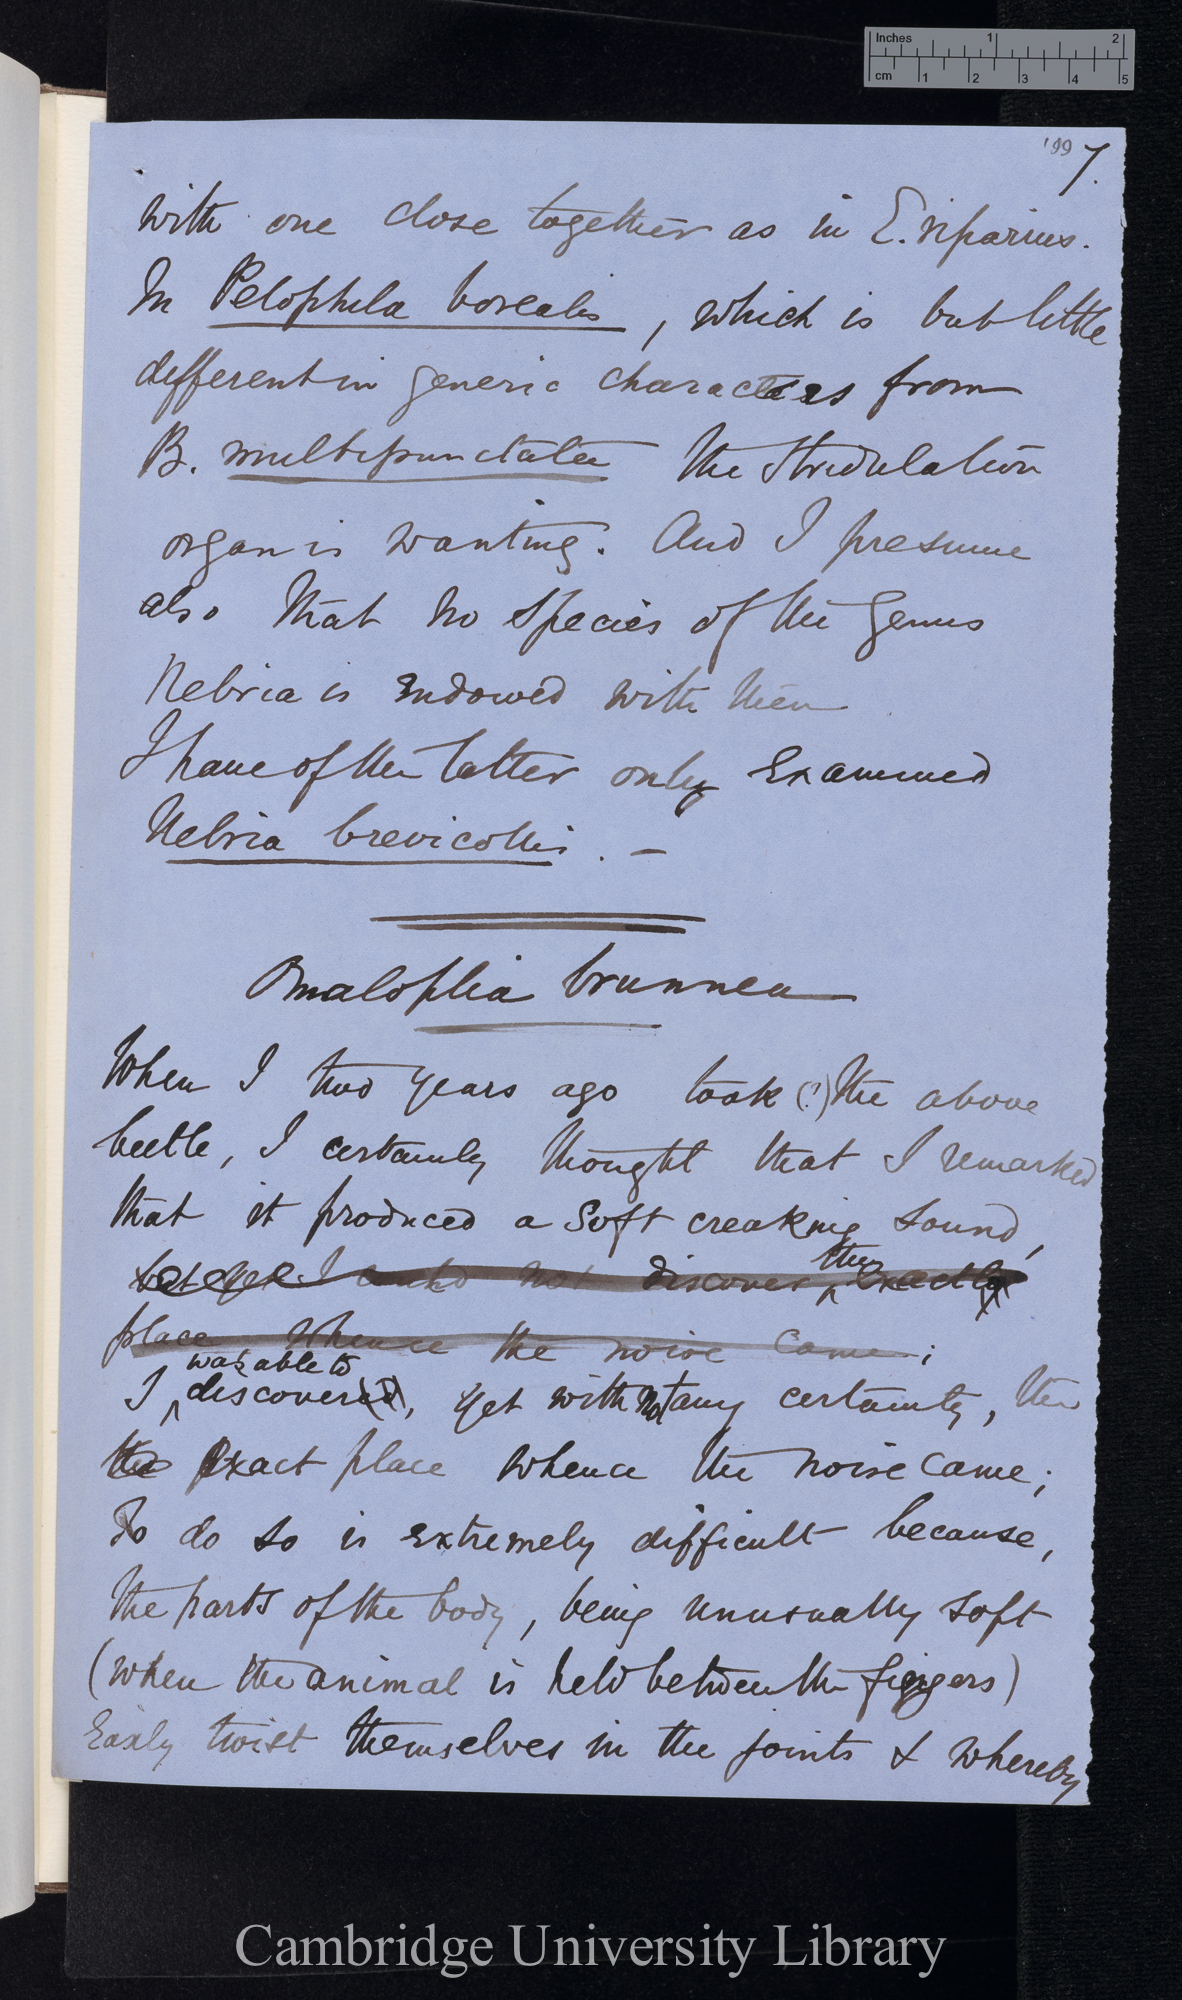 Inches 1 2
cm 1 2 3 4 5
199 7.
with one close together as in E. riparius.
In Pelophila borealis, which is but little
different in generic characters from
B. multipunctata the stridulation
organ is wanting. And I presume
also that no species of the genus
Nebria is endowed with them
I have of the latter only examined
Nebria brevicollis. —
Omaloplia brunnea
When I two years ago took (?) the above
beetle, I certainly thought that I remarked
that it produced a soft creaking sound,
but yet I could not discover the exactly
place whence the noise came;
I was able to discovered, yet with not any certainty, the
the exact place whence the noise came;
To do so is extremely difficult because,
the parts of the body, being unusually soft
(when the animal is held between the fingers)
Easily twist themselves in the joints & whereby
Cambridge University Library